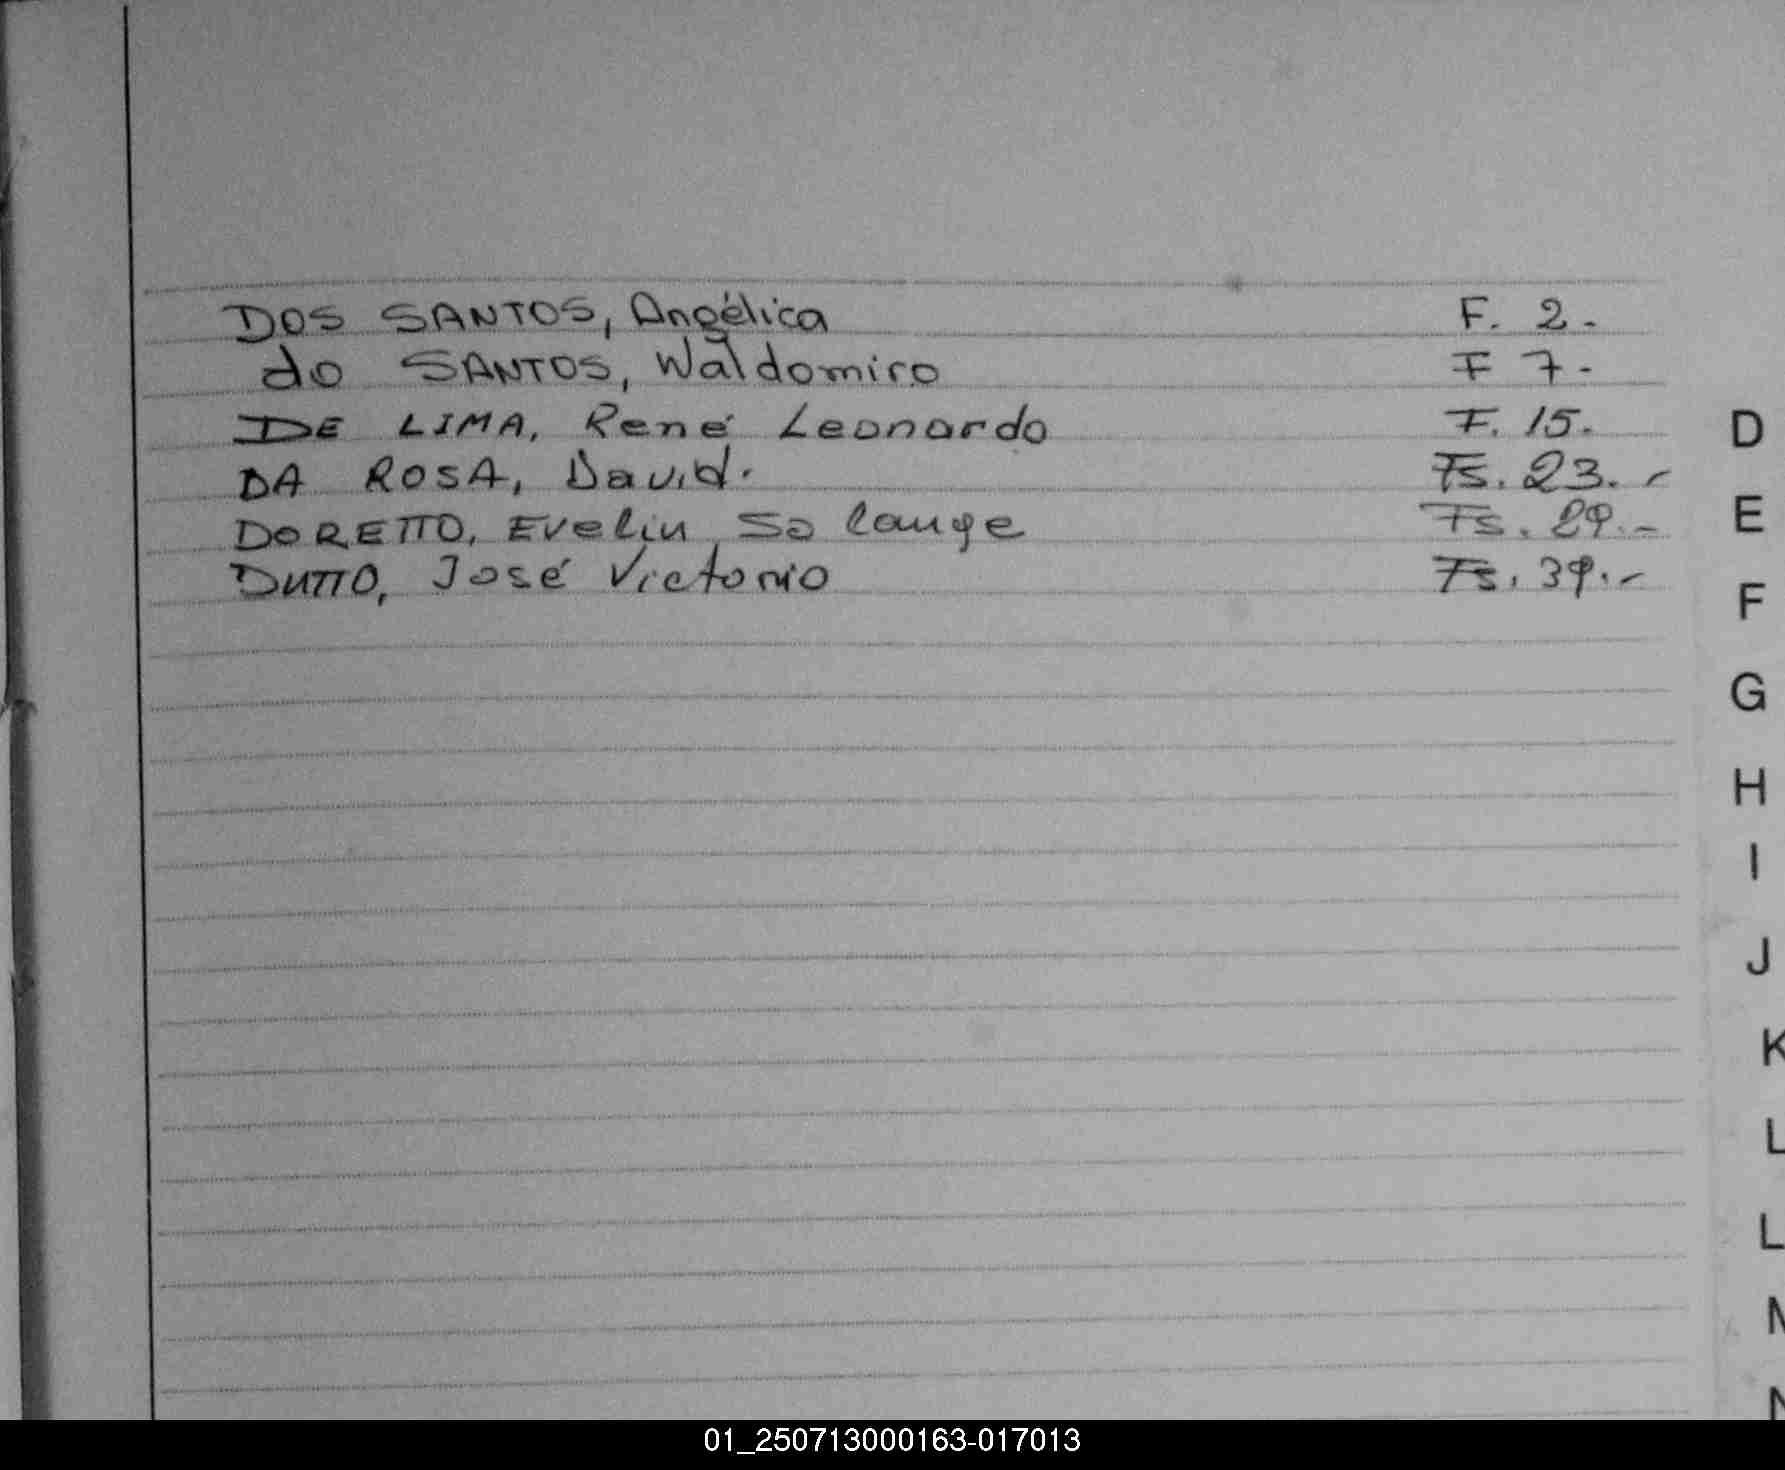 DOS SANTOS, Angélica F. 2.-
do SANTOS, Waldomiro F 7.-
DE LIMA, René Leonardo F. 15.
DA ROSA, David. Fs. 23.-
DORETTO, Evelin Solange Fs. 29.-
DUTTO, José Victorio Fs. 39.-
D
E
F
G
H
I
J
K
L
L
N
01_250713000163-017013